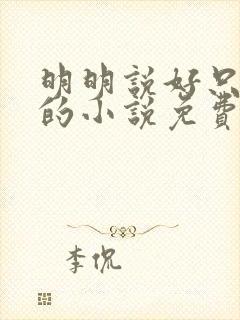 明明說好只
的小說免費
李侃